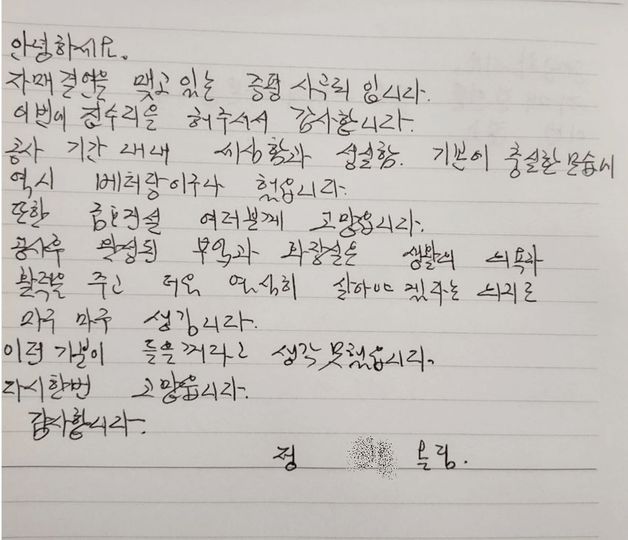 안녕하세요.
자매결연을 맺고 있는 증평 사곡리 입니다.
이번에 집수리을 해주셔서 감사합니다.
공사 기간 내내 세심함과 성실함. 기본이 충실한 모습에
역시 베테랑이구나 했습니다.
또한 금호건설 여러분께 고맙습니다.
공사후 완성된 부엌과 화장실은 생활의 의욕과
활력을 주고 더욱 열심히 살아야 겠다는 의지로
마구 마구 생깁니다.
이런 기분이 들을꺼라고 생각 못했습니다.
다시한번 고맙습니다.
감사합니다.
정 올림.